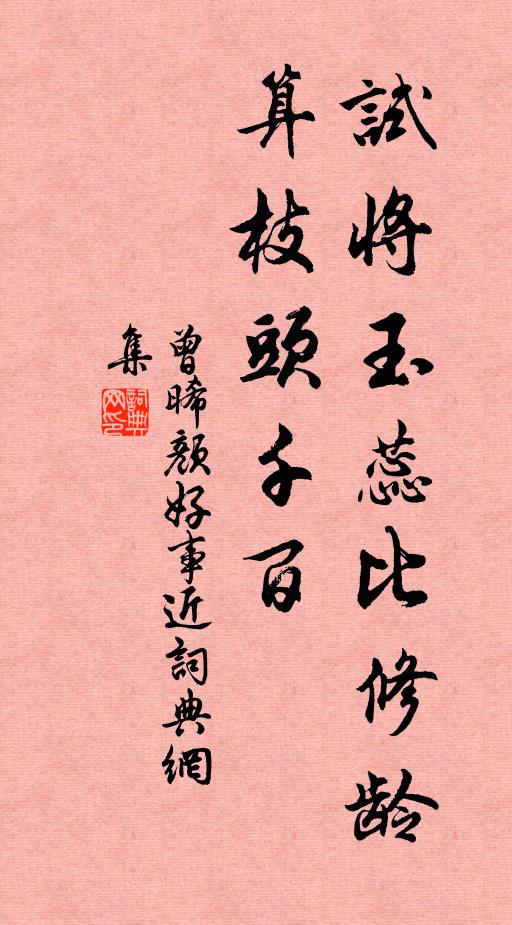 試將玉蕊比修龄
算枝頭千百
曾晞颜好事近詞典網
集
詞典
网印